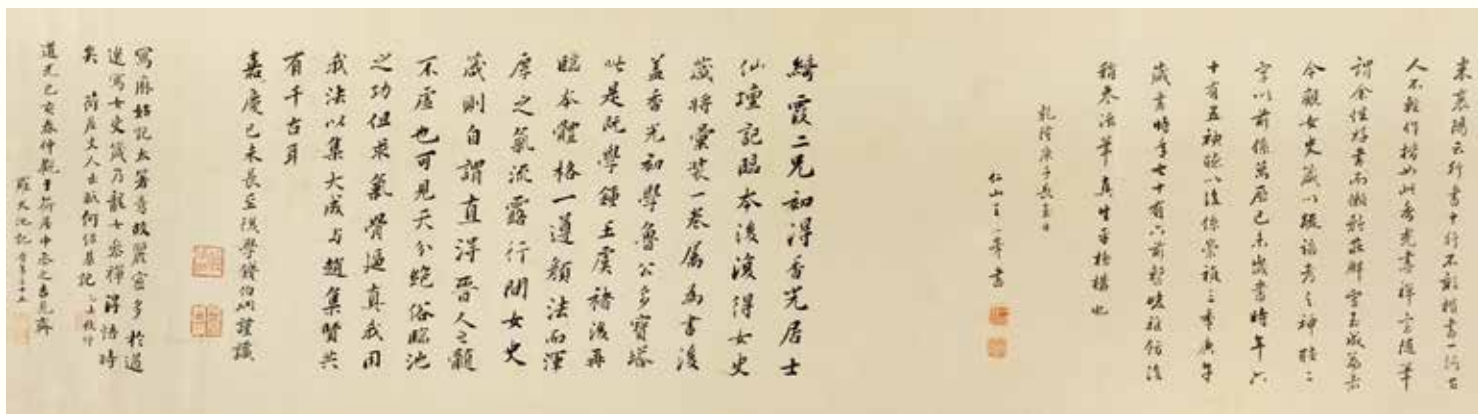 米襄陽云行書十行不敵楷書一行古
人不輕作楷如此香光書禪定隨筆
謂余性好書而懶矜莊鮮至成篇者
今觀女史箴以跋語考之神
字以前係萬曆己未歲書時年六
十有五神以後係崇禎三年庚午
歲書時年七十有六前
稍參渡筆真生平極構也
乾隆庚子長至日
仁山王 書
綺霞二兄初得香光居士
仙壇記臨本後復得女史
箴將彙裝一卷屬為書後
蓋香光初學魯公多寶塔
此是既學鍾王虞褚後再
臨本體格一遵顏法而渾
厚之氣流露行間女史
箴則自謂直得晉人之髓
不虛也可見天分絕俗臨池
之功但求氣骨逼真我用
我法以集大成與趙集賢共
有千古耳
嘉慶己未長至後學錢伯坰謹識
寫麻姑記太箸意故嚴密多於遒
逸寫女史箴乃龍女參禪得悟時
矣 荷屋丈人士 何紹基記
道光己亥春仲觀于荷屋中丞之
羅天池記